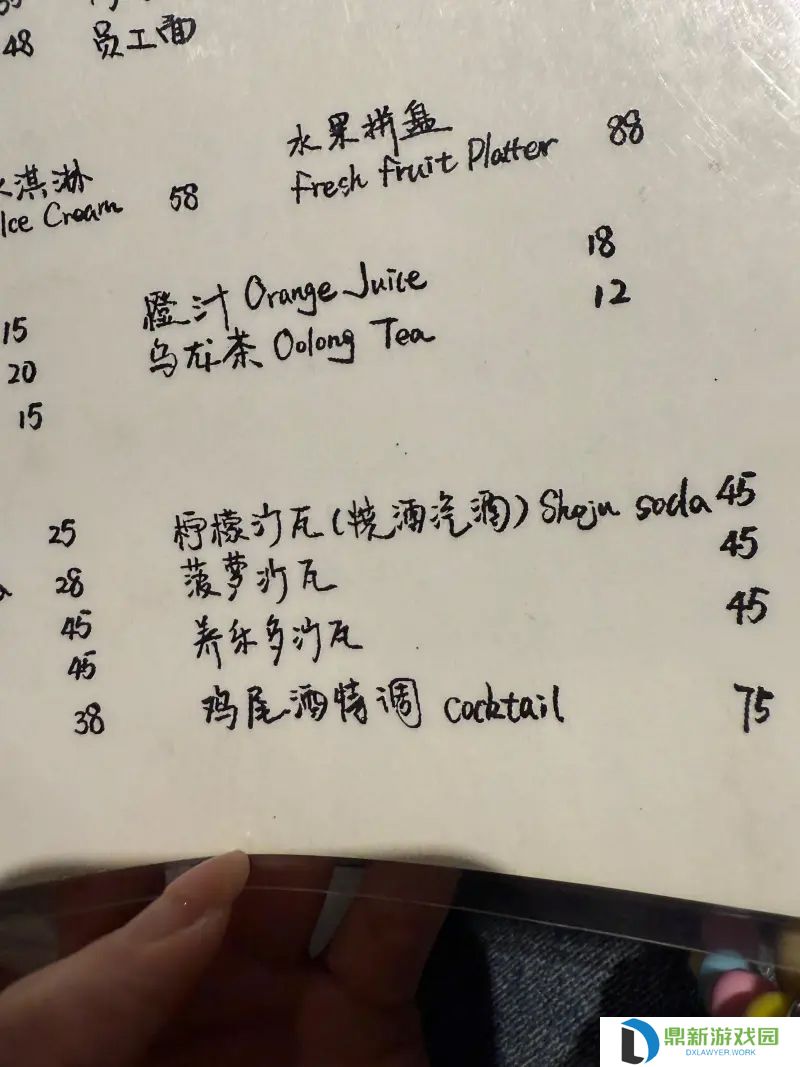 48 员工面
水果拼盘 88
Fresh fruit Platter
淇淋 58
Ice Cream
橙汁 Orange Juice 18
乌龙茶 Oolong Tea 12
15
20
15
25 柠檬沙瓦(烧酒汽酒) Shoju soda 45
28 菠萝沙瓦 45
45 养乐多沙瓦 45
45
38 鸡尾酒特调 cocktail 75
鼎新游戏园
DXLAWYER.WORK